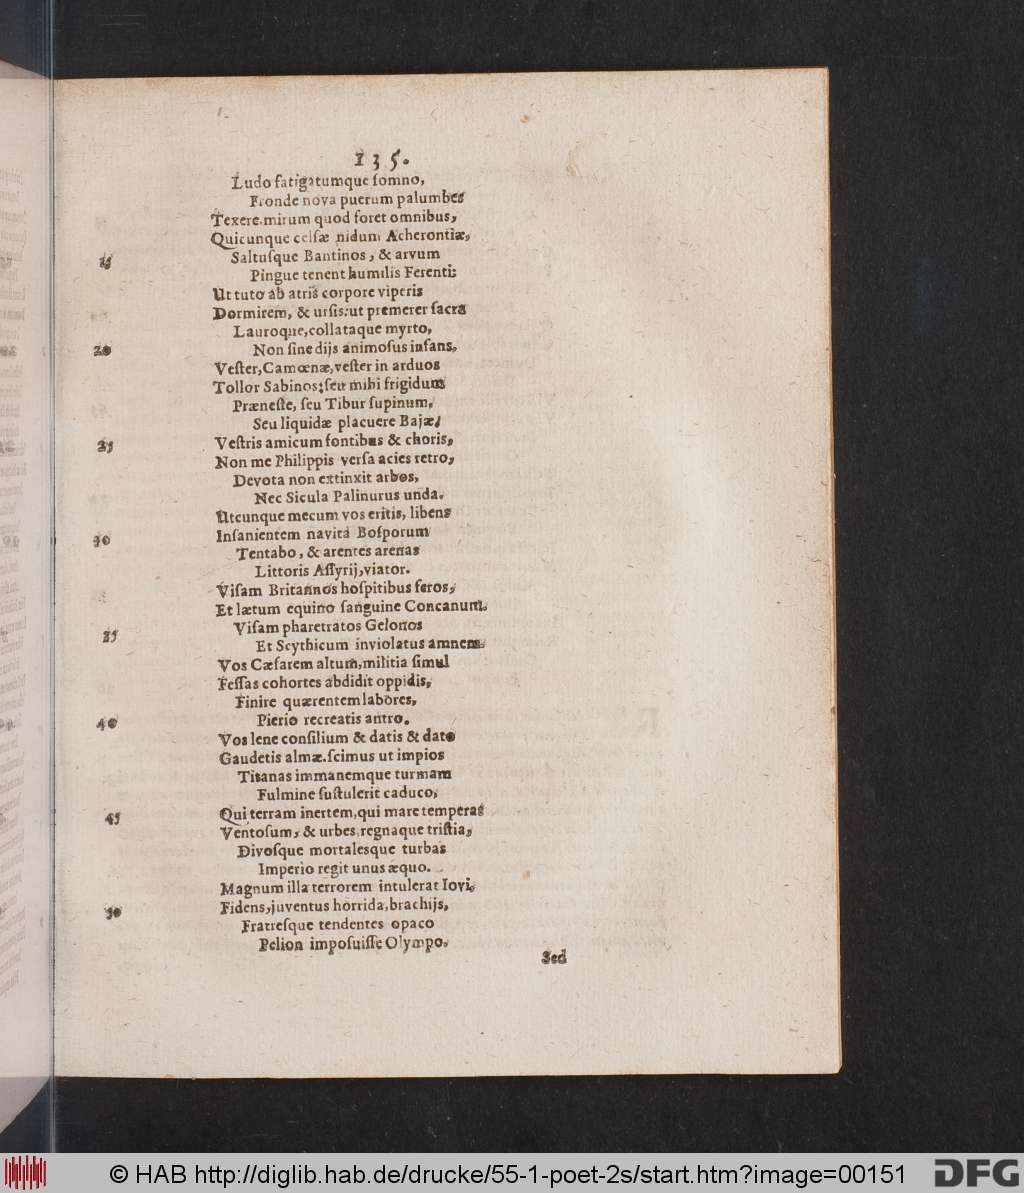 135.
Ludo fatigatumque somno,
Fronde nova puerum palumbes
Texere. mirum quod foret omnibus,
Quicunque celsæ nidum Acherontiæ,
15 Saltusque Bantinos, & arvum
Pingue tenent humilis Ferenti:
Ut tuto ab atris corpore viperis
Dormirem, & ursis: ut premerer sacra
Lauroque, collataque myrto,
20 Non sine dijs animosus infans,
Vester, Camœnæ, vester in arduos
Tollor Sabinos; seu mihi frigidum
Præneste, seu Tibur supinum,
Seu liquidæ placuere Bajæ,
25 Vestris amicum fontibus & choris,
Non me Philippis versa acies retro,
Devota non extinxit arbos,
Nec Sicula Palinurus unda.
Utcunque mecum vos eritis, libens
30 Insanientem navita Bosporum
Tentabo, & arentes arenas
Littoris Assyrij, viator.
Visam Britannos hospitibus feros,
Et lætum equino sanguine Concanum.
35 Visam pharetratos Gelonos
Et Scythicum inviolatus amnem.
Vos Cæsarem altum, militia simul
Fessas cohortes abdidit oppidis,
Finire quærentem labores,
40 Pierio recreatis antro.
Vos lene consilium & datis & dato
Gaudetis almæ. scimus ut impios
Titanas immanemque turmam
Fulmine sustulerit caduco,
45 Qui terram inertem, qui mare temperat
Ventosum, & urbes, regnaque tristia,
Divosque mortalesque turbas
Imperio regit unus æquo.
Magnum illa terrorem intulerat Iovi,
50 Fidens, juventus horrida, brachijs,
Fratresque tendentes opaco
Pelion imposuisse Olympo.
Sed
© HAB http://diglib.hab.de/drucke/55-1-poet-2s/start.htm?image=00151
DFG